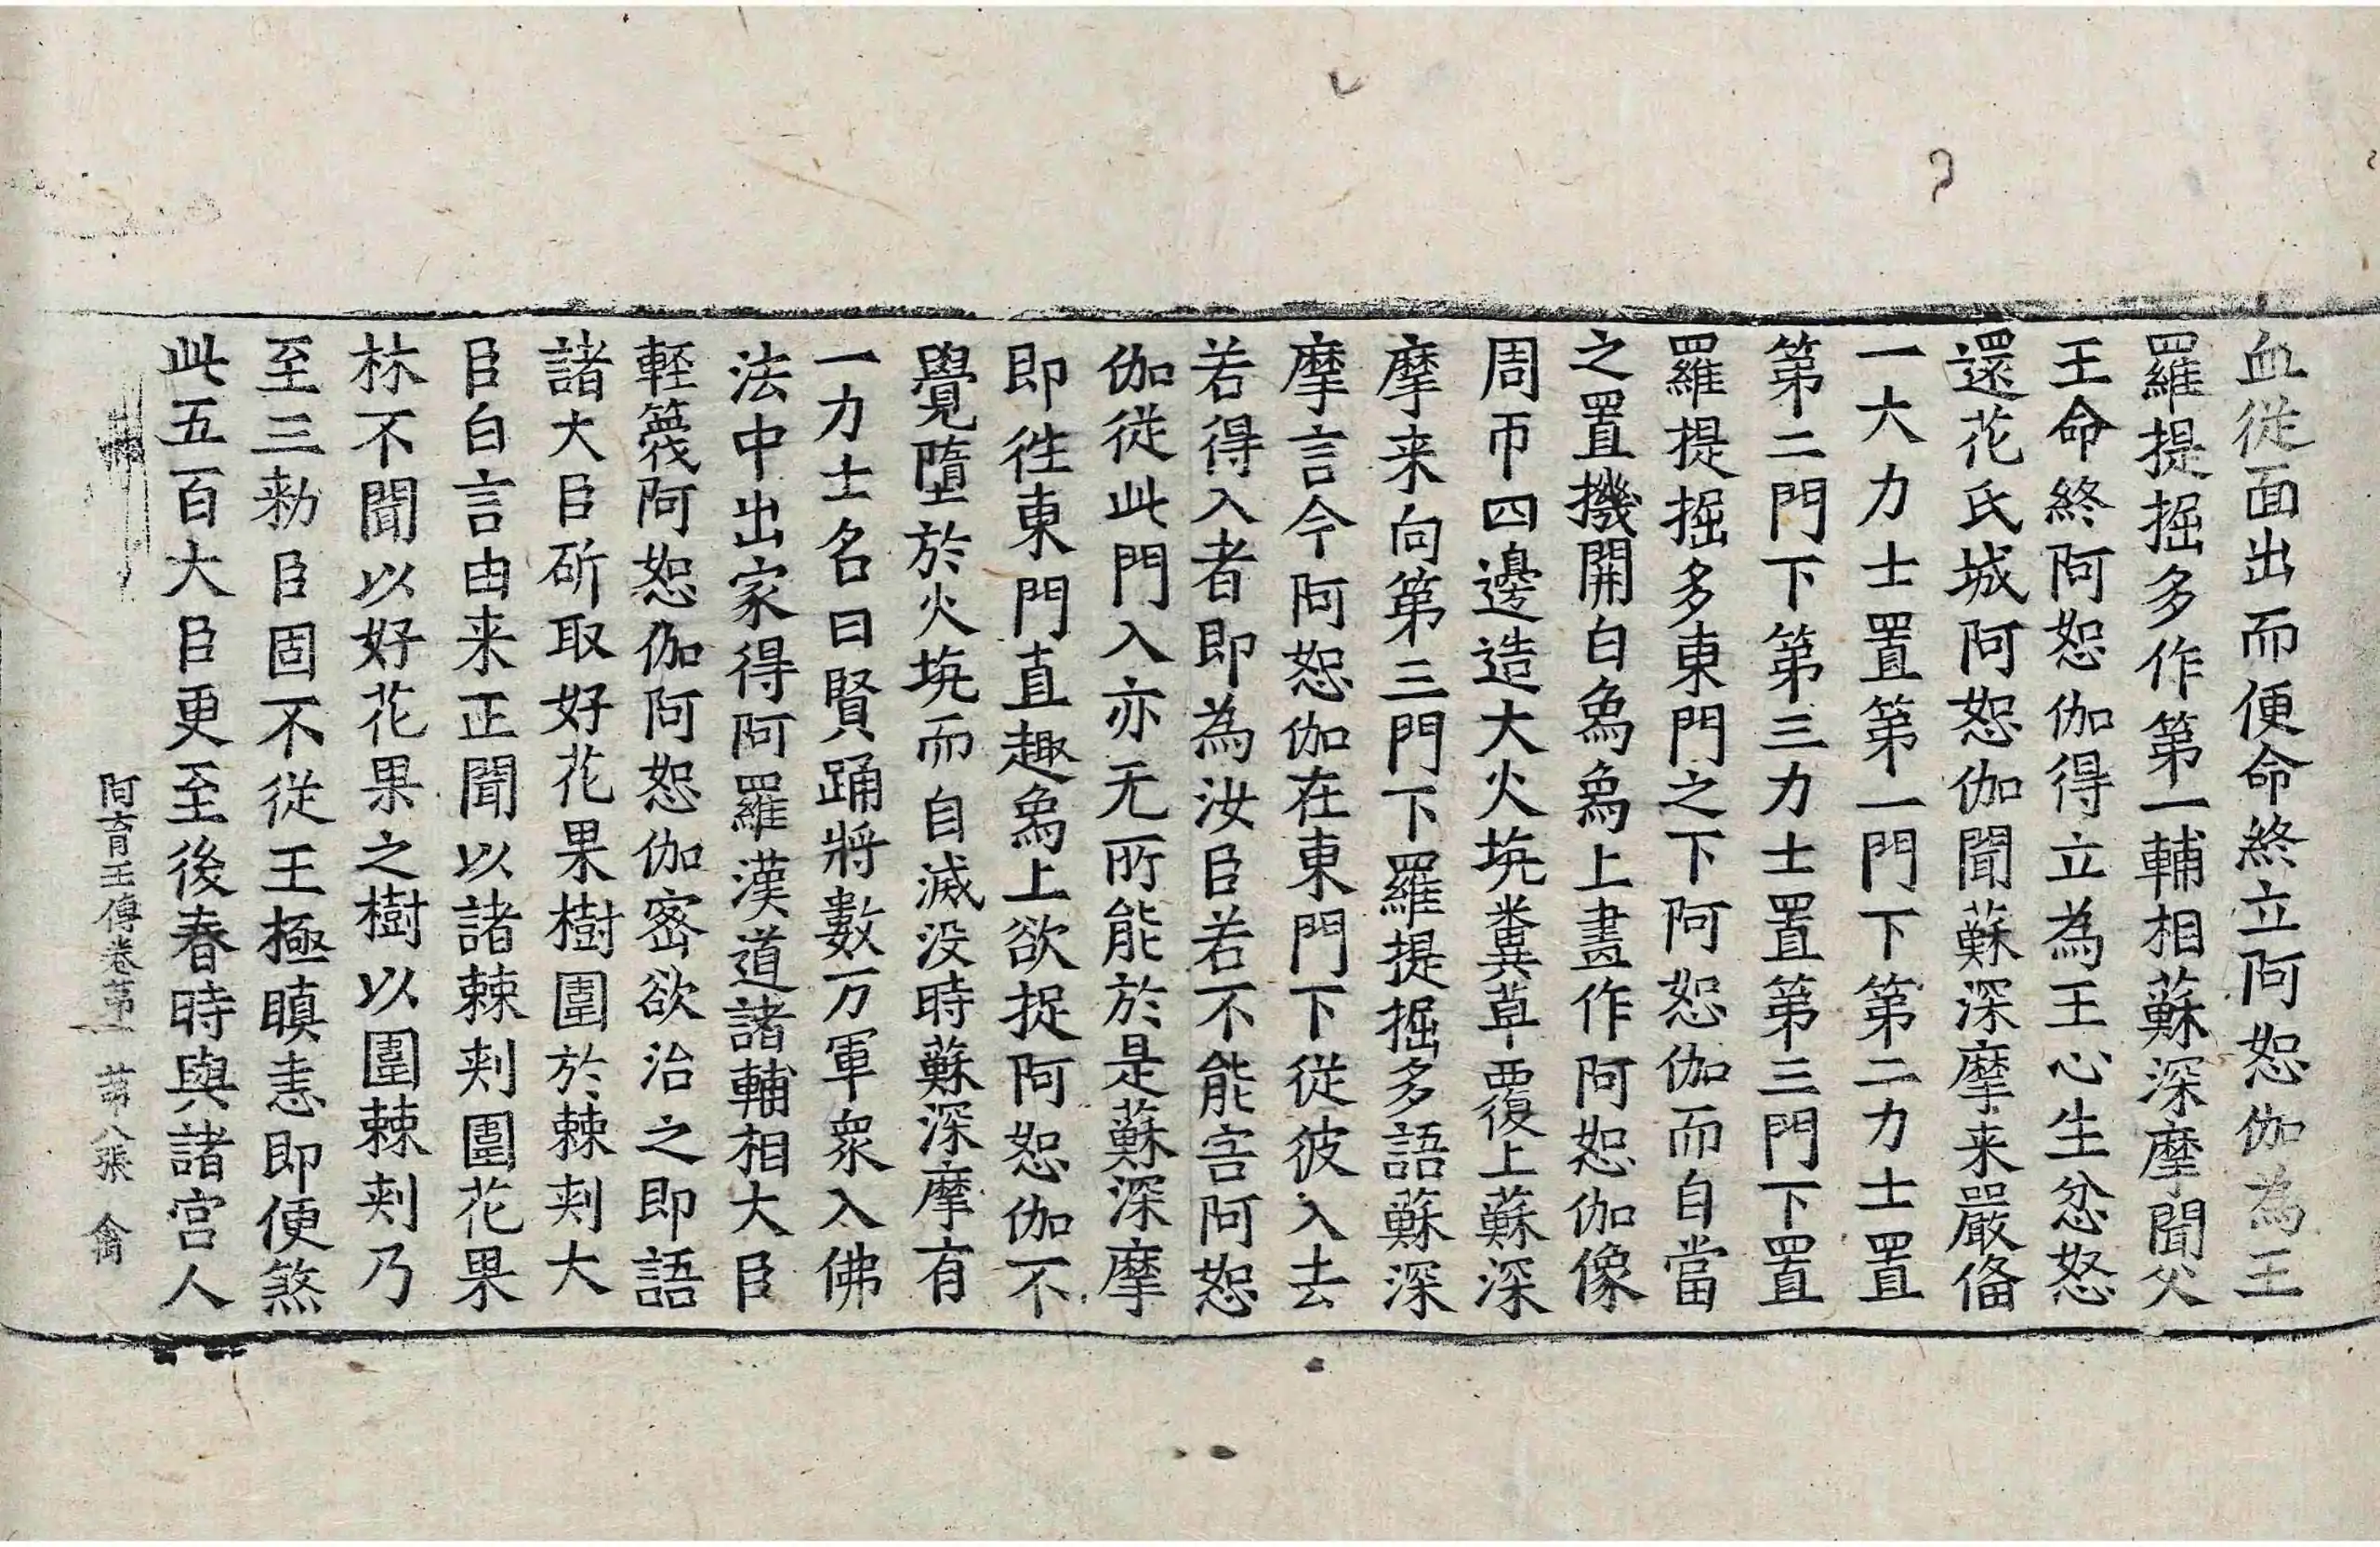 血從面出而便命終立阿恕伽為王
羅提掘多作第一輔相蘇深摩聞父
王命終阿恕伽得立為王心生忿怒
還花氏城阿恕伽聞蘇深摩来嚴俻
一大力士置第一門下第二力士置
第二門下第三力士置第三門下置
羅提掘多東門之下阿恕伽而自當
之置機開白象象上畫作阿恕伽像
周帀四邊造大火坑糞草覆上蘇深
摩来向第三門下羅提掘多語蘇深
摩言今阿恕伽在東門下從彼入去
若得入者即為汝臣若不能害阿恕
伽從此門入亦无所能於是蘇深摩
即徃東門直趣象上欲捉阿恕伽不
覺墮於火坑而自滅没時蘇深摩有
一力士名曰賢踊將數万軍衆入佛
法中出家得阿羅漢道諸輔相大臣
輕篾阿恕伽阿恕伽密欲治之即語
諸大臣斫取好花果樹圍於棘刾大
臣白言由来正聞以諸棘刾圍花果
林不聞以好花果之樹以圍棘刾乃
至三勑臣固不從王極瞋恚即便煞
此五百大臣更至後春時與諸宮人
阿育王傳卷第一 第八張